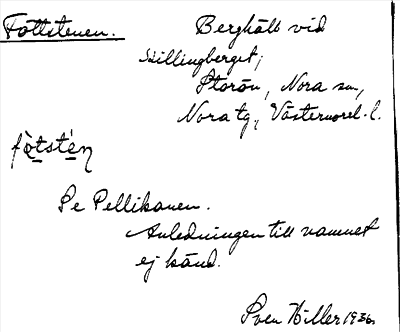 Fottstenen.
Berghäll vid
Skillingberget,
Storön, Nora sn,
Nora tg., Västernorrl. l.
fò̱tsté̱n
Se Pellikanen.
Anledningen till namnet
ej känd.
Sven Hiller 1936.